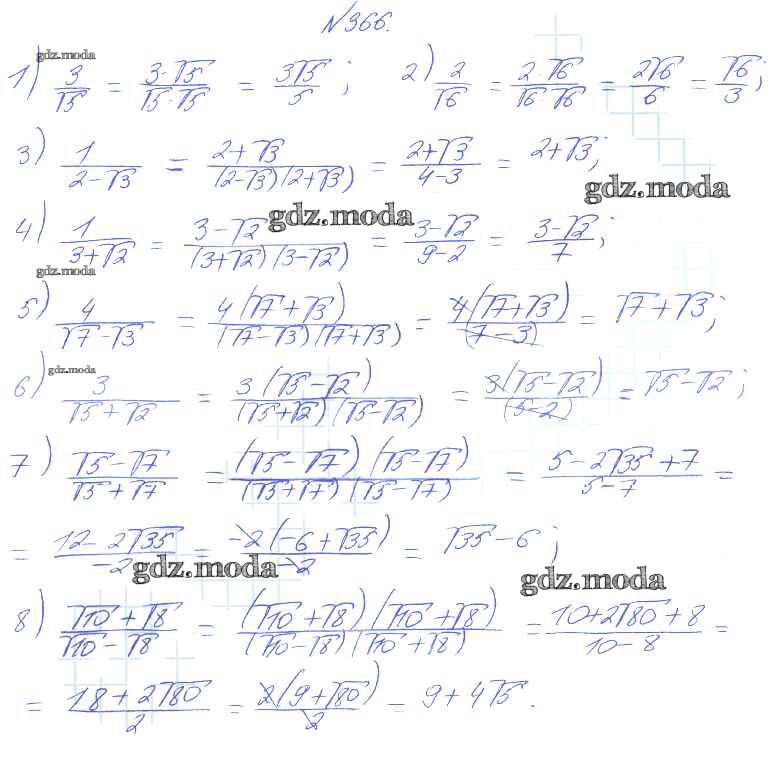 №366.
gdz.moda
1) 3/√5 = 3·√5/√5·√5 = 3√5/5 ; 2) 2/√6 = 2·√6/√6·√6 = 2√6/6 = √6/3 ;
3) 1/2-√3 = 2+√3/(2-√3)(2+√3) = 2+√3/4-3 = 2+√3 ;
gdz.moda
gdz.moda
4) 1/3+√2 = 3-√2/(3+√2)(3-√2) = 3-√2/9-2 = 3-√2/7 ;
gdz.moda
5) 4/√7-√3 = 4(√7+√3)/(√7-√3)(√7+√3) = 4(√7+√3)/(7-3) = √7+√3 ;
gdz.moda
6) 3/√5+√2 = 3(√5-√2)/(√5+√2)(√5-√2) = 3(√5-√2)/(5-2) = √5-√2 ;
7) √5-√7/√5+√7 = (√5-√7)(√5-√7)/(√5+√7)(√5-√7) = 5-2√35+7/5-7 =
= 12-2√35/-2 = -2(-6+√35)/-2 = √35-6 ;
gdz.moda
gdz.moda
8) √10+√8/√10-√8 = (√10+√8)(√10+√8)/(√10-√8)(√10+√8) = 10+2√80+8/10-8 =
= 18+2√80/2 = 2(9+√80)/2 = 9+4√5 .